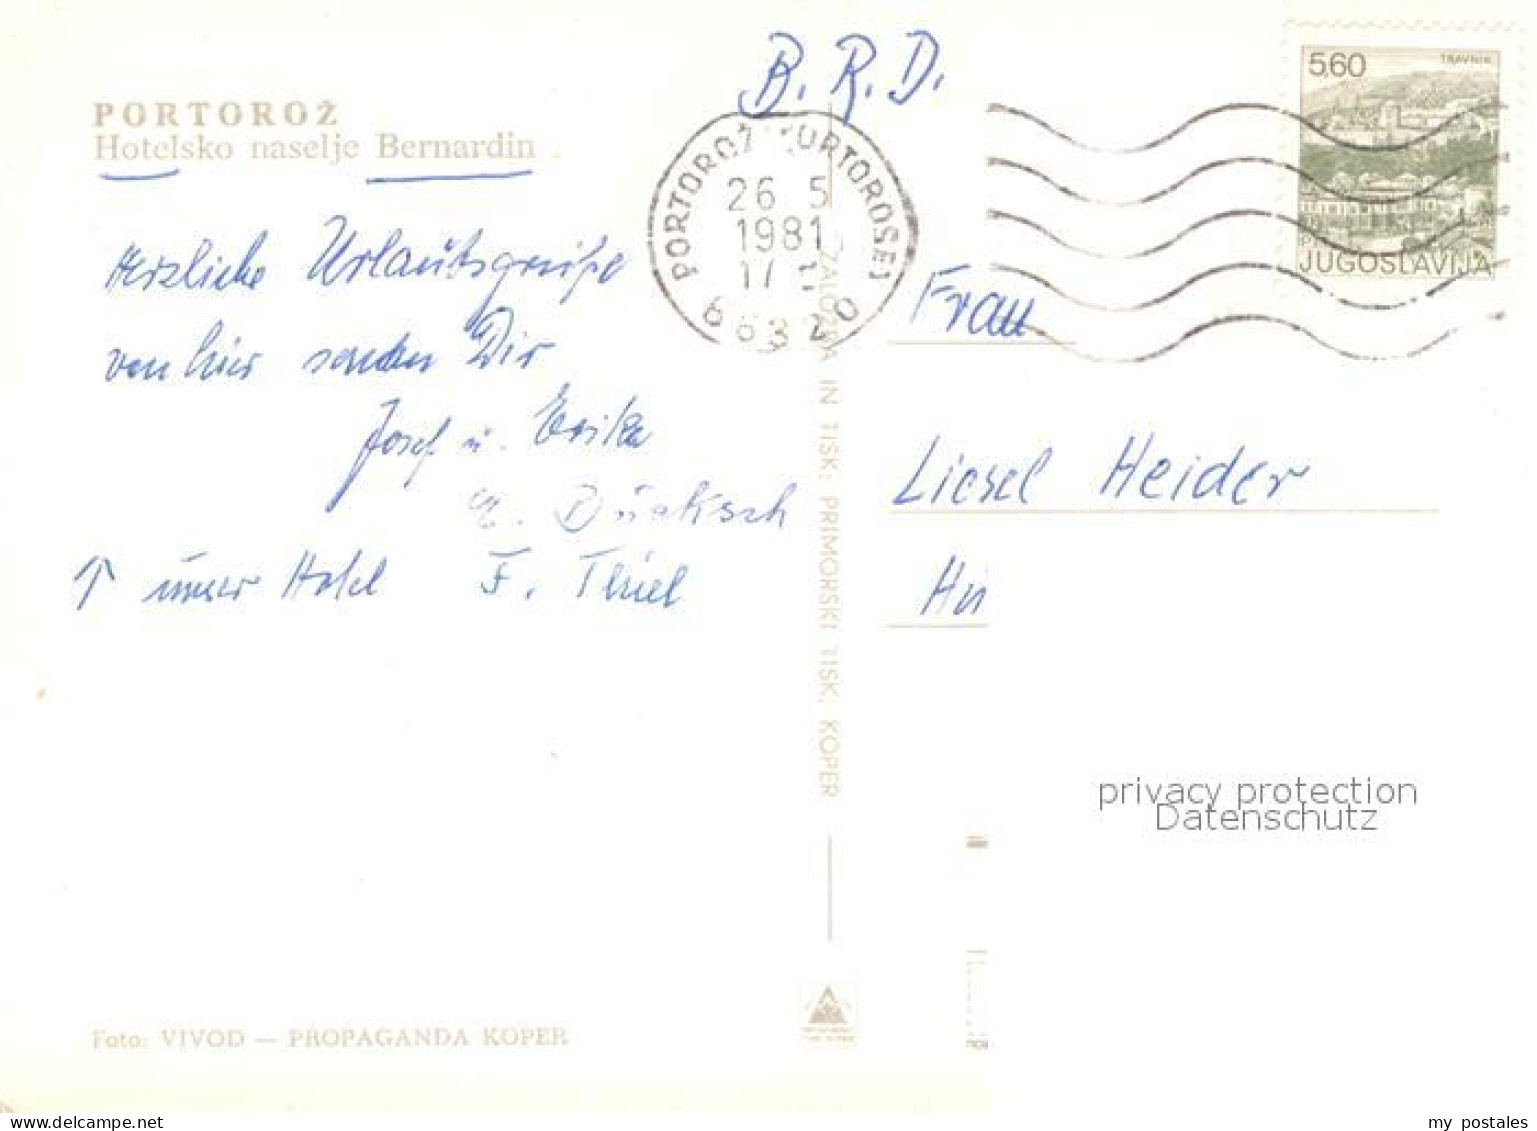 B.R.D.
PORTOROŽ
Hotelsko naselje Bernardin
Herzliche Urlaubsgrüße
von hier senden Dir
Josef u. Erika
Dürksch
↑ unser Hotel F. Thiel
Foto: VIVOD — PROPAGANDA KOPER
PORTOROŽ PORTOROSE
26 5
1981
17
66320
ZALOŽBA IN TISK: PRIMORSKI TISK, KOPER
560
TRAVNIK
JUGOSLAVIJA
Frau
Liesel Heider
privacy protection
Datenschutz
my postales